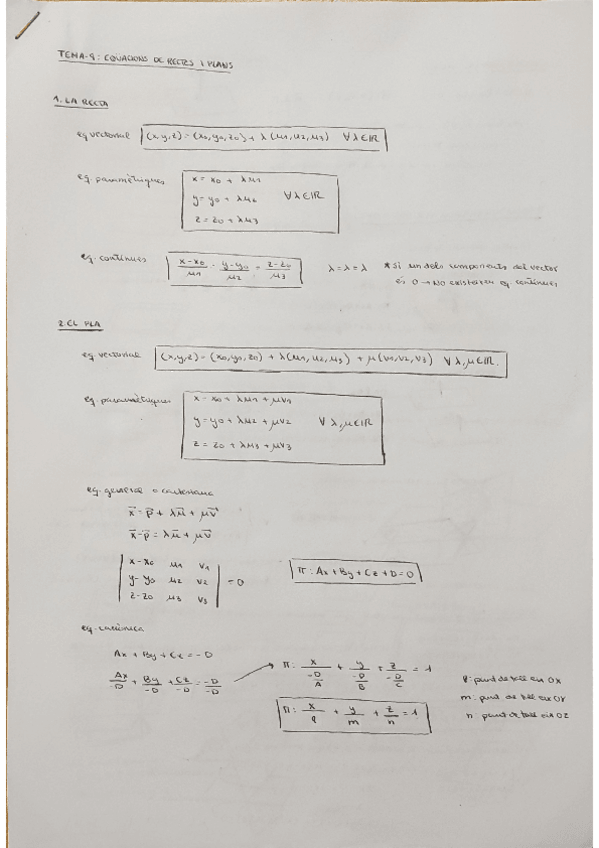 TEMA-8: EQUACIONS DE RECTES I PLANS
1. LA RECTA
eq vectorial (x,y,z) = (x0,y0,z0) + λ(μ1,μ2,μ3) ∀λ∈IR
eq. paramètriques x = x0 + λμ1
y = y0 + λμ2 ∀λ∈IR
z = z0 + λμ3
eq. contínues x-x0/μ1 = y-y0/μ2 = z-z0/μ3 λ=λ=λ * Si un dels components del vector
és 0 → No existeixen eq contínues
2. EL PLA
eq. vectorial (x,y,z) = (x0,y0,z0) + λ(μ1,μ2,μ3) + μ(v1,v2,v3) ∀λ,μ∈IR.
eq. paramètriques x = x0 + λμ1 + μv1
y = y0 + λμ2 + μv2 ∀λ,μ∈IR
z = z0 + λμ3 + μv3
eq. general o cartesiana
x⃗ = p⃗ + λu⃗ + μv⃗
x⃗ - p⃗ = λu⃗ + μv⃗
| x-x0 μ1 v1 |
| y-y0 μ2 v2 | = 0 π: Ax + By + Cz + D = 0
| z-z0 μ3 v3 |
eq. canònica
Ax + By + Cz = -D
Ax/-D + By/-D + Cz/-D = -D/-D → π: x/(-D/A) + y/(-D/B) + z/(-D/C) = 1
π: x/q + y/m + z/n = 1
q: punt de tall eix OX
m: punt de tall eix OY
n: punt de tall eix OZ